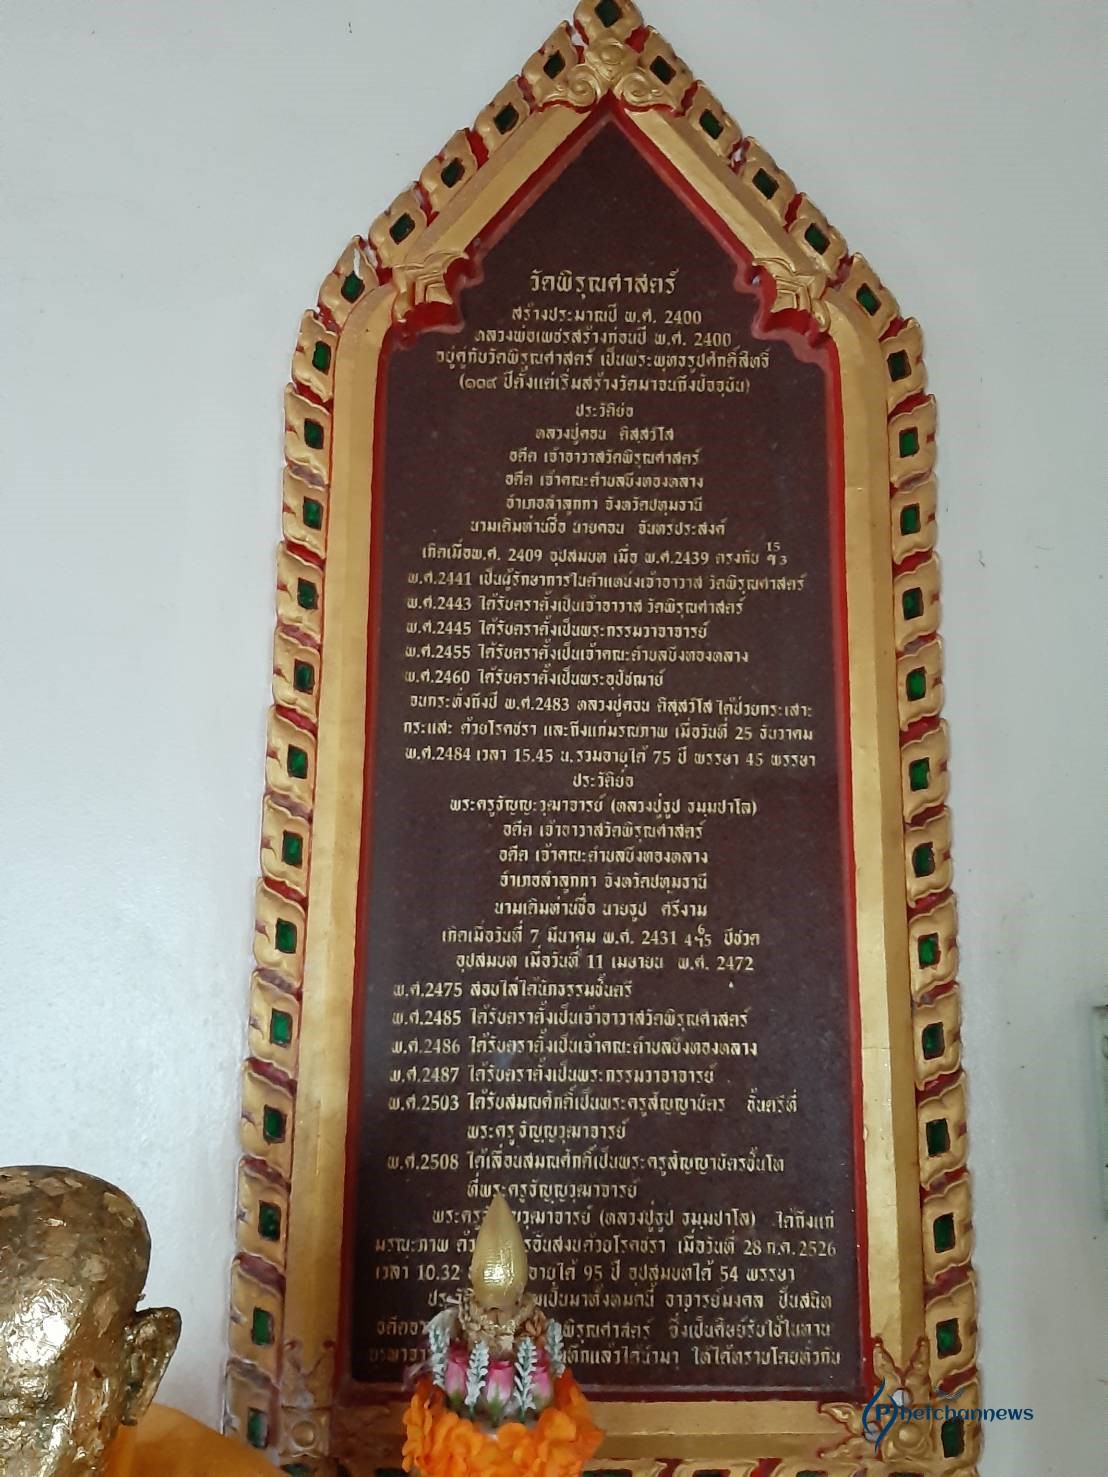 วัดพิรุณศาสตร์
สร้างประมาณปี พ.ศ. 2400
หลวงพ่อเพชรสร้างก่อนปี พ.ศ. 2400
อยู่คู่กับวัดพิรุณศาสตร์ เป็นพระพุทธรูปศักดิ์สิทธิ์
(๑๑๙ ปีตั้งแต่เริ่มสร้างวัดมาจนถึงปัจจุบัน)
ประวัติย่อ
หลวงปู่คอน ติสฺสวํโส
อดีต เจ้าอาวาสวัดพิรุณศาสตร์
อดีต เจ้าคณะตำบลบึงทองหลาง
อำเภอลำลูกกา จังหวัดปทุมธานี
นามเดิมท่านชื่อ นายคอน จันทรประสงค์
เกิดเมื่อพ.ศ. 2409 อุปสมบท เมื่อ พ.ศ.2439 ตรงกับ 15 ฯ 3
พ.ศ.2441 เป็นผู้รักษาการในตำแหน่งเจ้าอาวาส วัดพิรุณศาสตร์
พ.ศ.2443 ได้รับตราตั้งเป็นเจ้าอาวาส วัดพิรุณศาสตร์
พ.ศ.2445 ได้รับตราตั้งเป็นพระกรรมวาจาจารย์
พ.ศ.2455 ได้รับตราตั้งเป็นเจ้าคณะตำบลบึงทองหลาง
พ.ศ.2460 ได้รับตราตั้งเป็นพระอุปัชฌาย์
จนกระทั่งถึงปี พ.ศ.2483 หลวงปู่คอน ติสฺสวํโส ได้ป่วยกระเสาะ
กระแสะ ด้วยโรคชรา และถึงแก่มรณภาพ เมื่อวันที่ 25 ธันวาคม
พ.ศ.2484 เวลา 15.45 น. รวมอายุได้ 75 ปี พรรษา 45 พรรษา
ประวัติย่อ
พระครูธัญญะวุฒาจารย์ (หลวงปู่ธูป ธมฺมปาโล)
อดีต เจ้าอาวาสวัดพิรุณศาสตร์
อดีต เจ้าคณะตำบลบึงทองหลาง
อำเภอลำลูกกา จังหวัดปทุมธานี
นามเดิมท่านชื่อ นายธูป ศรีงาม
เกิดเมื่อวันที่ 7 มีนาคม พ.ศ. 2431 4 6 ฯ 5 ปีชวด
อุปสมบท เมื่อวันที่ 11 เมษายน พ.ศ. 2472
พ.ศ.2475 สอบไล่ได้นักธรรมชั้นตรี
พ.ศ.2485 ได้รับตราตั้งเป็นเจ้าอาวาสวัดพิรุณศาสตร์
พ.ศ.2486 ได้รับตราตั้งเป็นเจ้าคณะตำบลบึงทองหลาง
พ.ศ.2487 ได้รับตราตั้งเป็นพระกรรมวาจาจารย์
พ.ศ.2503 ได้รับสมณศักดิ์เป็นพระครูสัญญาบัตร ชั้นตรีที่
พระครู ธัญญวุฒาจารย์
พ.ศ.2508 ได้เลื่อนสมณศักดิ์เป็นพระครูสัญญาบัตรชั้นโท
ที่พระครูธัญญวุฒาจารย์
พระครู วุฒาจารย์ (หลวงปู่ธูป ธมฺมปาโล) ได้ถึงแก่
มรณะภาพ อันสงบด้วยโรคชรา เมื่อวันที่ 28 ก.ค. 2526
เวลา 10.32 อายุได้ 95 ปี อุปสมบทได้ 54 พรรษา
เป็นมาทั้งหมดนี้ อาจารย์มงคล ปั้นสนิท
พิรุณศาสตร์ ซึ่งเป็นศิษย์รับใช้ในท่าน
แล้วได้นำมา ให้ได้ทราบโดยทั่วกัน
Phetchannews